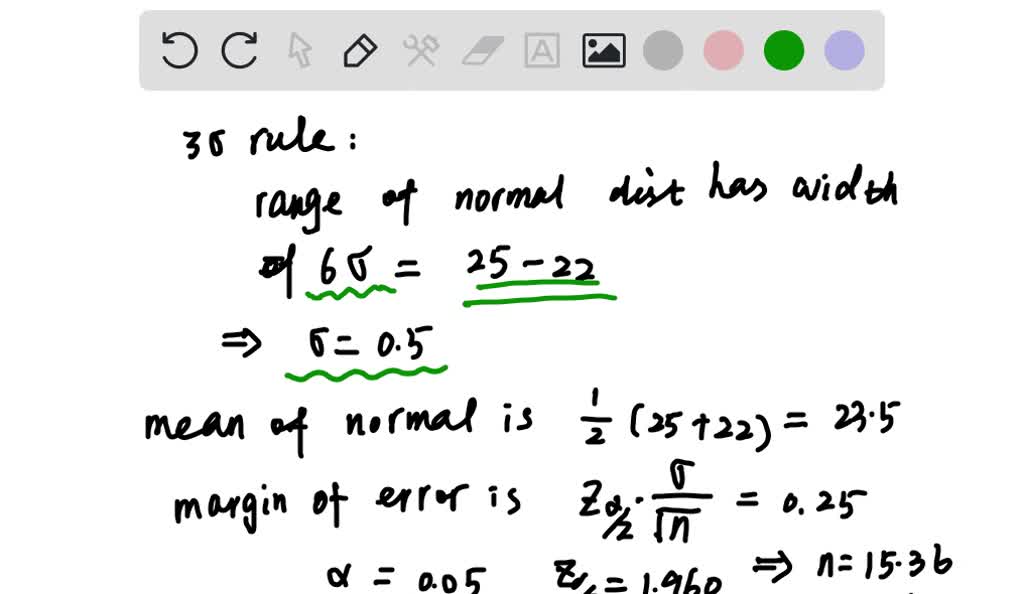 A
3σ rule:
range of normal dist has width
of 6σ = 25 - 22
⇒ σ = 0.5
mean of normal is 1/2 (25 + 22) = 23.5
margin of error is Z α/2 · σ/√n = 0.25
α = 0.05 Zα/2 = 1.960 ⇒ n = 15.36